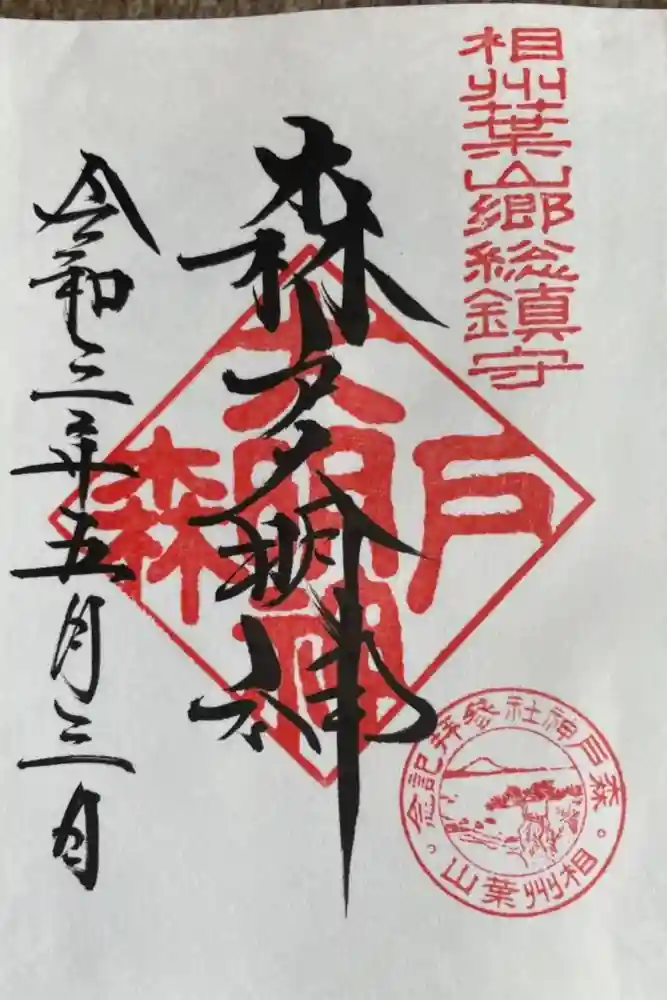 相州葉山郷総鎮守
森戸大明神
令和三年五月三日
森戸大明神
森戸神社参拝記念。相州葉山。